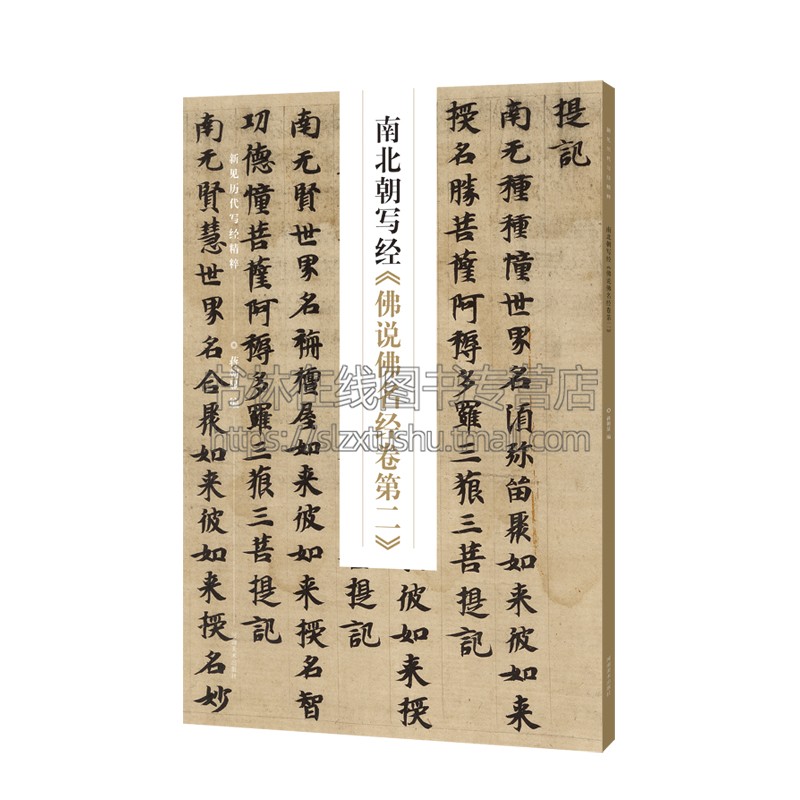 提記
南无種種憧世界名須弥笛聚如来彼如来
授名勝菩薩阿耨多羅三狼三菩提記
彼如来授
提記
南北朝写经《佛说佛名经卷第二》
南无賢世界名栴檀屋如来彼如来授名智
功德憧菩薩阿耨多羅三狼三菩提記
新见历代写经精粹
南无賢慧世界名合聚如来彼如来授名妙
新见历代写经精粹
南北朝写经《佛说佛名经卷第二》
书林在线图书专营店
https://slzxtushu.tmall.com